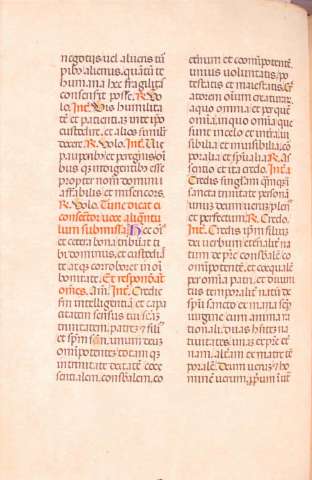 negotiis vel alienis tur
pib; alienus, quantū te
humana hec fragilitas
consenserit posse. R. Vo
lo. Int. Vis humilita
tē et patientiā in te ipō
custodire, et alios similiter
docere. R. Volo. Int. Vis
pauperib; et peregrinis oīb
bus qz indigentib; esse
propter nomen domini
affabilis et misericors.
R. Volo. Tunc dicat ei
consecrator voce aliquantu
lum submissa. Hec oīa
et cetera bona tribuat ti
bi dominus, et custodiat
te atqz corroboret in oī
bonitate. Et respondeāt
omēs. Am. Int. Credis
sm intelligentiā et capa
citatem sensus tui scām
trinitatem, patrē z filiū
et spm scm, unum deum
omnipotentē, totam qz
in trinitate deitatē coes
sentialem, consbalem, co
eternum et coomīpotentē,
unius voluntatis, po
testatis et maiestatis. Et
creatorem oīum creaturar,
a quo omīa, per quē omīa,
in quo omīa que
sunt in celo et in terra, vi
sibilia et invisibilia, cor
poralia et spūalia. R. As
sentio et ita credo. Int.
Credis singlam quamqz
sancta trinitate personā
unum deum verum plenū
et perfectum. R. Credo.
Int. Credis ipm filium
dei verbum eternalit na
tum de patre consbalē co
omīpotentē, et coequalē
per omīa patri, et divini
tus temporalit natū de
spū sancto ex maria semp
virgine cum anima ra
tionali. Duas habentē na
tivitates, unā ex patre et
nam, alterā ex matre tē
poralē. Deum verum z ho
minē verum, proprium in utra